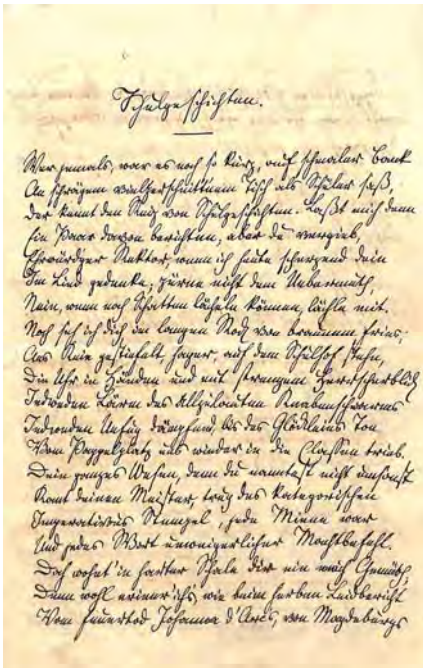 Schulgeschichten.
Wer jemals, war es noch so kurz, auf schmaler Bank
An schrägem vielzerschnittnem Tisch als Schüler saß,
Der kennt den Reiz von Schulgeschichten. Laßt mich denn
Ein Paar davon berichten, aber du vergieb,
Ehrwürdger Rektor, wenn ich heute scherzend dein
Im Lied gedenke, zürne nicht dem Uebermuth,
Nein, wenn noch Schatten lächeln können, lächle mit.
Noch seh ich dich im langen Rock von braunem Fries,
Ans Knie gestiefelt, hager, auf dem Schulhof stehn,
Die Uhr in Händen und mit strengem Herrscherblick
Jedweden Lärm des allzulauten Knabenschwarms
Jedweden Unfug dämpfend bis des Glöckleins Ton
Vom Pappelplatz uns wieder in die Classen trieb.
Dein ganzes Wesen, denn du nanntest nicht umsonst
Kant deinen Meister, trug des kategorischen
Imperativus Stempel, jede Miene war
Und jedes Wort unweigerlicher Machtbefehl.
Doch wohnt' in harter Schale dir ein weich Gemüth,
Denn wohl erinnr' ich's, wie beim herben Leidbericht
Vom Feuertod Johanna d'Arcs, von Magdeburgs